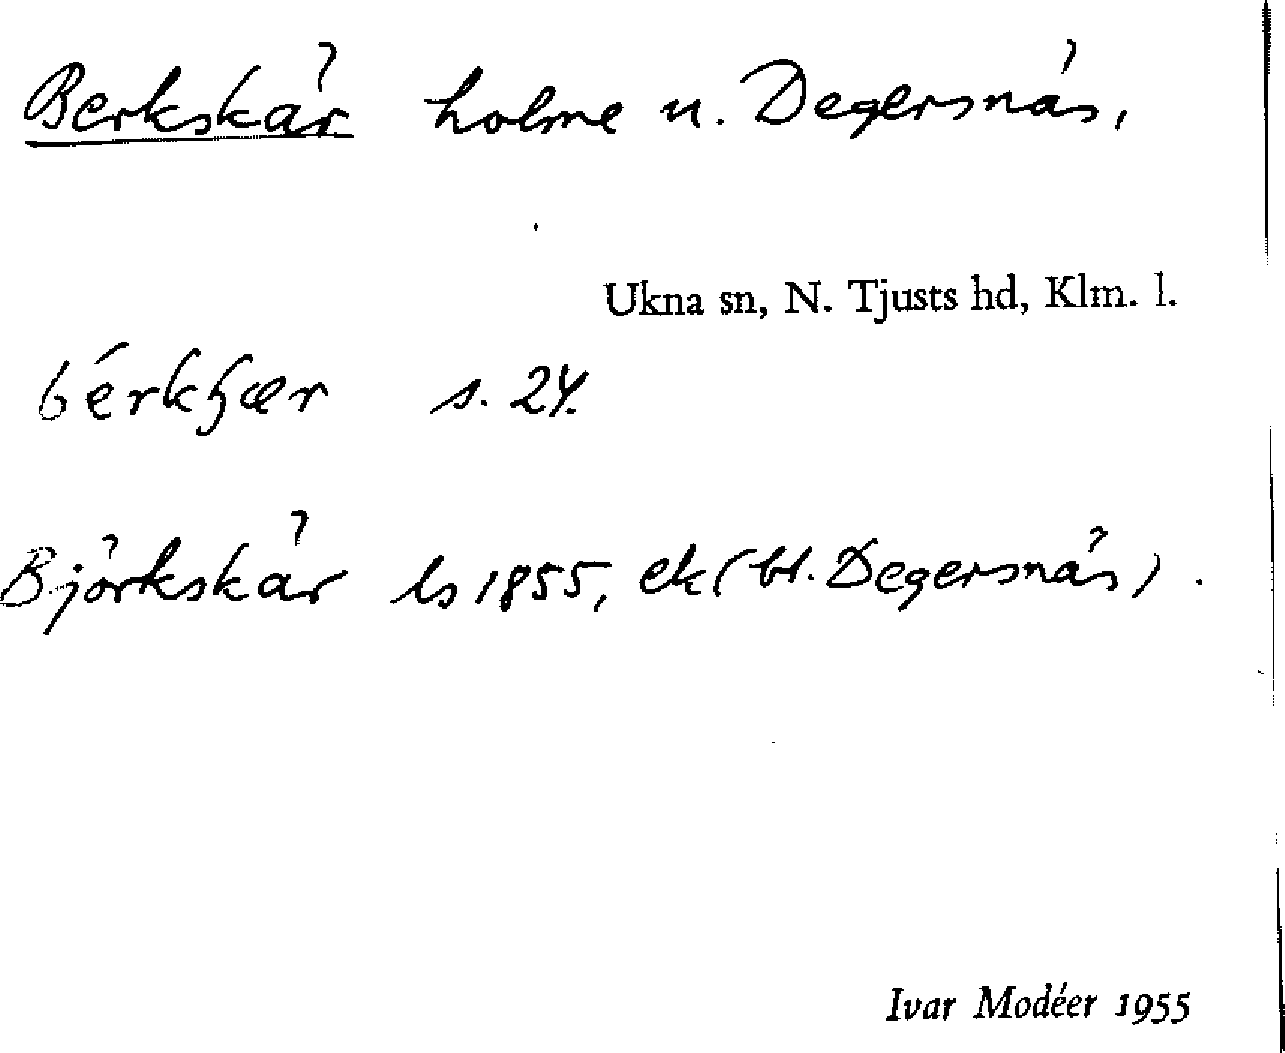 Berkskär holme u. Degersnäs,
Ukna sn, N. Tjusts hd, Klm. l.
bérkʃær s. 24.
Björkskär ls 1855, ek (bl. Degersnäs).
Ivar Modéer 1955